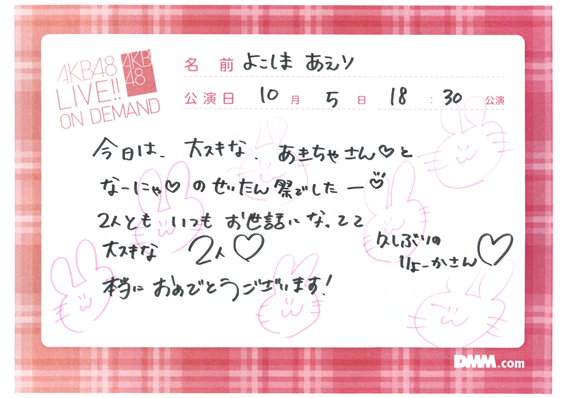 AKB48
LIVE!!
ON DEMAND
AKB
48
名前 よこしま あえり
公演日 10月 5日 18:30 公演
今日は、大スキな、あきちゃさん♡と
なーにゃ♡のせいたん祭でしたー
2人とも いつも お世話になってて
大スキな 2人♡
久しぶりの
りょーかさん♡
本当に おめでとうございます!
DMM.com